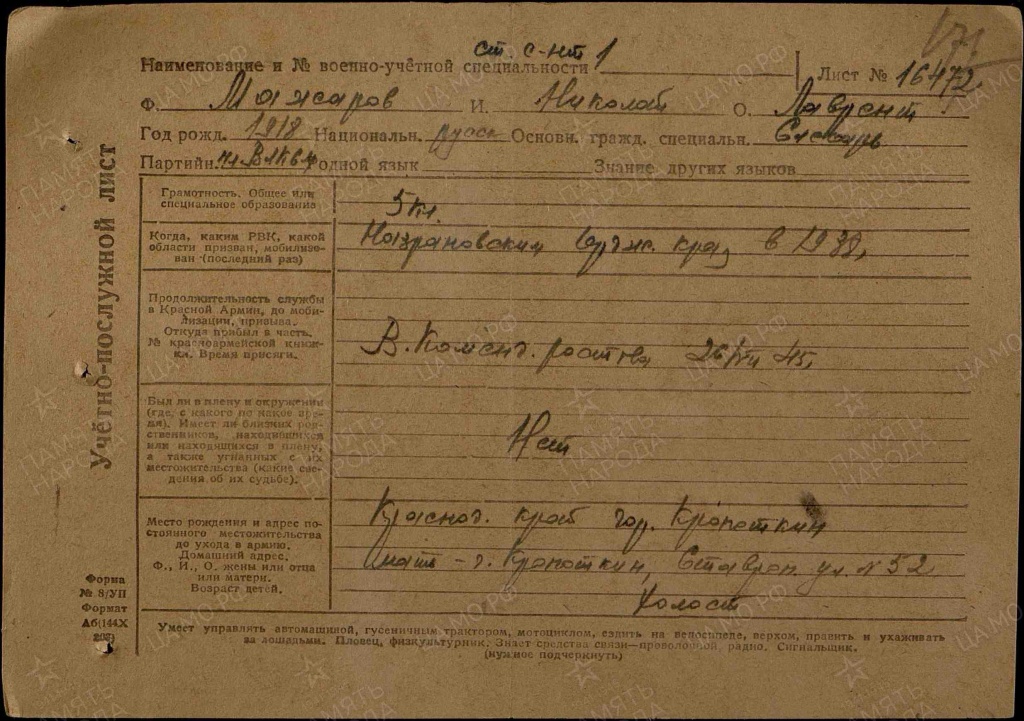 ст. с-нт 1
Наименование и № военно-учётной специальности
Лист № 16472
Ф. Можаров И. Николай О. Лаврент
Год рожд. 1918 Национальн. русск Основн. гражд. специальн. Слесарь
Партийн. чл ВЛКСМ Родной язык Знание других языков
Учётно-послужной лист
Грамотность. Общее или
специальное образование
5 кл.
Когда, каким РВК, какой
области призван, мобилизо-
ван (последний раз)
Назрановским край в 1939,
Продолжительность службы
в Красной Армии, до моби-
лизации, призыва.
Откуда прибыл в часть.
№ красноармейской книж-
ки. Время присяги.
В. Коменд. 45,
Был ли в плену и окружении
(где, с какого по какое вре-
мя). Имеет ли близких род-
ственников, находившихся
или находящихся в плену,
а также угнанных с их
местожительства (какие све-
дения об их судьбе).
Нет
Место рождения и адрес по-
стоянного местожительства
до ухода в армию.
Домашний адрес.
Ф., И., О. жены или отца
или матери.
Возраст детей.
Краснод. край гор. Кропоткин
мать - г. Кропоткин, Ставроп. ул. № 52
Холост
Форма
№ 8/УП
Формат
Аб(144Х
203)
Умеет управлять автомашиной, гусеничным трактором, мотоциклом, ездить на велосипеде, верхом, править и ухаживать
за лошадьми. Пловец, физкультурник. Знает средства связи—проволочной, радио. Сигнальщик.
(нужное подчеркнуть)
ПАМЯТЬ НАРОДА
ЦАМО.РФ